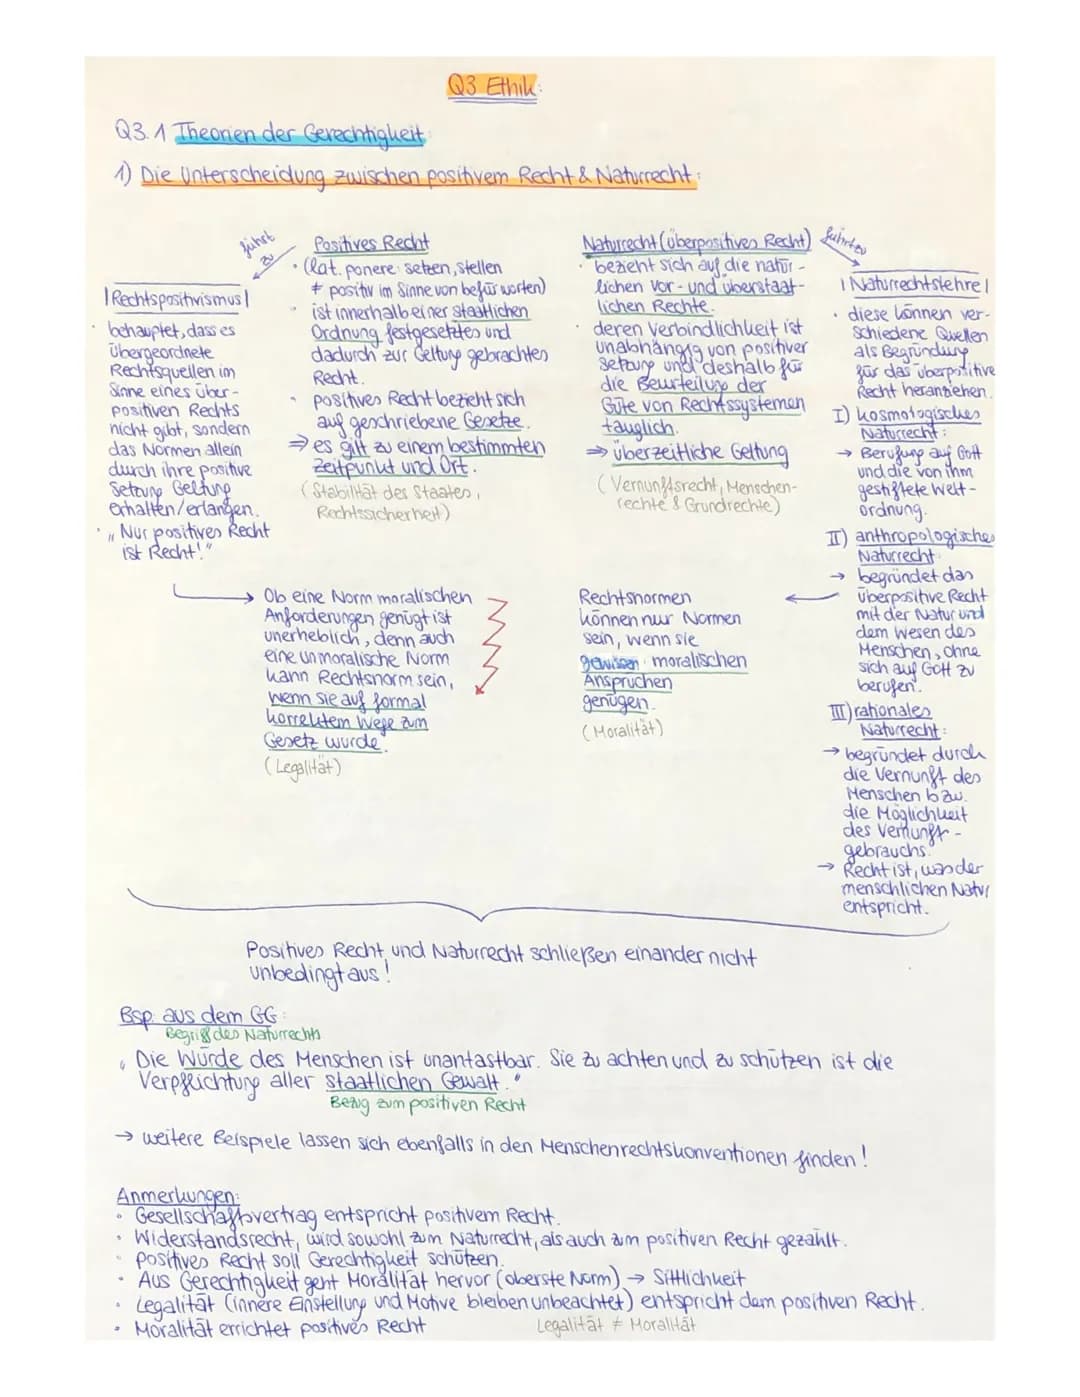 Q3 Ethik:
Q3.1 Theorien der Gerechtigkeit
1) Die Unterscheidung zwischen positivem Recht & Naturrecht:
führt zu
| Rechtspositivismus |
· behauptet, dass es
übergeordnete
Rechtsquellen im
Sinne eines über-
positiven Rechts
nicht gibt, sondern
das Normen allein
durch ihre positive
Setzung Geltung
erhalten/erlangen.
· „Nur positives Recht
ist Recht!"
Positives Recht
· (lat. ponere: setzen, stellen
≠ positiv im Sinne von befürworten)
· ist innerhalb einer staatlichen
Ordnung festgesetztes und
dadurch zur Geltung gebrachtes
Recht.
· positives Recht bezieht sich
auf geschriebene Gesetze.
⇒ es gilt zu einem bestimmten
Zeitpunkt und Ort.
(Stabilität des Staates,
Rechtssicherheit)
Naturrecht (überpositives Recht)
· bezieht sich auf die natür-
lichen vor- und überstaat-
lichen Rechte.
· deren Verbindlichkeit ist
unabhängig von positiver
Setzung und deshalb für
die Beurteilung der
Güte von Rechtssystemen
tauglich.
⇒ überzeitliche Geltung
(Vernunftsrecht, Menschen-
rechte & Grundrechte)
führt zu
| Naturrechtslehre |
· diese können ver-
schiedene Quellen
als Begründung
für das überpositive
Recht heranziehen.
I) kosmologisches
Naturrecht:
→ Berufung auf Gott
und die von ihm
gestiftete Welt-
ordnung.
II) anthropologisches
Naturrecht
→ begründet das
überpositive Recht
mit der Natur und
dem Wesen des
Menschen, ohne
sich auf Gott zu
berufen.
III) rationales
Naturrecht:
→ begründet durch
die Vernunft des
Menschen bzw.
die Möglichkeit
des Vernunft-
gebrauchs.
→ Recht ist, was der
menschlichen Natur
entspricht.
→ Ob eine Norm moralischen
Anforderungen genügt ist
unerheblich, denn auch
eine unmoralische Norm
kann Rechtsnorm sein,
wenn sie auf formal
korrektem Wege zum
Gesetz wurde.
(Legalität)
Rechtsnormen
können nur Normen
sein, wenn sie
gewissen moralischen
Ansprüchen
genügen.
(Moralität)
Positives Recht und Naturrecht schließen einander nicht
unbedingt aus!
Bsp. aus dem GG:
Begriff des Naturrechts
„Die Würde des Menschen ist unantastbar. Sie zu achten und zu schützen ist die
Verpflichtung aller staatlichen Gewalt."
Bezug zum positiven Recht
→ weitere Beispiele lassen sich ebenfalls in den Menschenrechtskonventionen finden!
Anmerkungen:
· Gesellschaftsvertrag entspricht positivem Recht.
· Widerstandsrecht, wird sowohl zum Naturrecht, als auch zum positiven Recht gezählt.
· positives Recht soll Gerechtigkeit schützen.
· Aus Gerechtigkeit geht Moralität hervor (oberste Norm) → Sittlichkeit
· Legalität (innere Einstellung und Motive bleiben unbeachtet) entspricht dem positiven Recht.
· Moralität errichtet positives Recht
Legalität ≠ Moralität